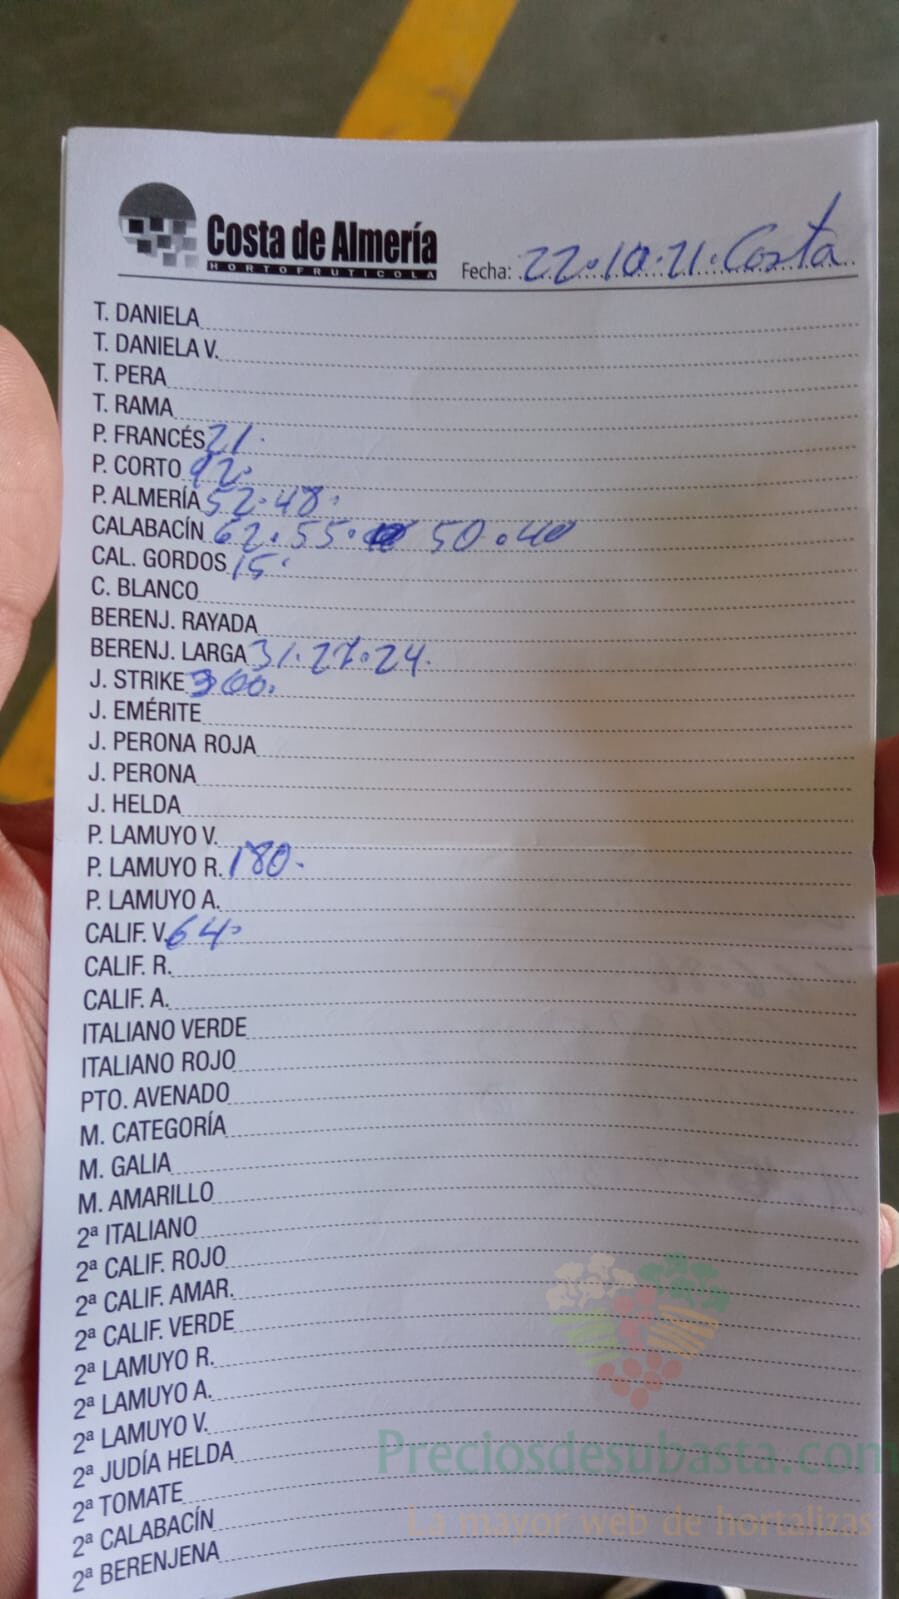 Costa de Almería
HORTOFRUTICOLA
Fecha: 22.10.21. Costa
T. DANIELA
T. DANIELA V.
T. PERA
T. RAMA
P. FRANCÉS 21.
P. CORTO 92.
P. ALMERÍA 52.48.
CALABACÍN 62.55. 50.40
CAL. GORDOS 15.
C. BLANCO
BERENJ. RAYADA
BERENJ. LARGA 31.27.24.
J. STRIKE 300.
J. EMÉRITE
J. PERONA ROJA
J. PERONA
J. HELDA
P. LAMUYO V.
P. LAMUYO R. 180.
P. LAMUYO A.
CALIF. V. 64.
CALIF. R.
CALIF. A.
ITALIANO VERDE
ITALIANO ROJO
PTO. AVENADO
M. CATEGORÍA
M. GALIA
M. AMARILLO
2ª ITALIANO
2ª CALIF. ROJO
2ª CALIF. AMAR.
2ª CALIF. VERDE
2ª LAMUYO R.
2ª LAMUYO A.
2ª LAMUYO V.
2ª JUDÍA HELDA
2ª TOMATE
2ª CALABACÍN
2ª BERENJENA
Preciosdesubasta.com
La mayor web de hortalizas